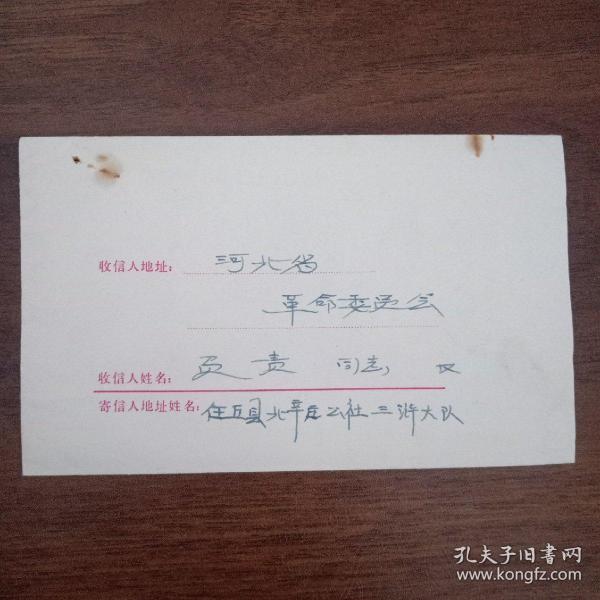 收信人地址： 河北省
革命委员会
收信人姓名： 负责 同志， 收
寄信人地址姓名： 任丘县北辛庄公社三浒大队
孔夫子旧书网
www.kongfz.com